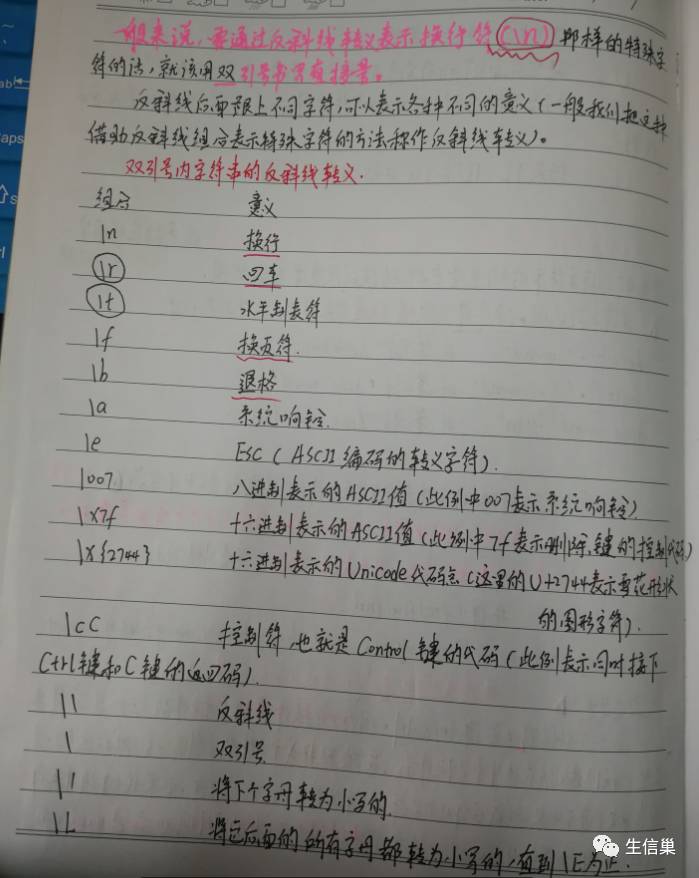 一般来说，要通过反斜线转义表示换行符(\n)那样的特殊字
符的话，就该用双引号书写直接量。
反斜线后面跟上不同字符，可以表示各种不同的意义(一般我们把这种
借助反斜线组合表示特殊字符的方法称作反斜线转义)。
双引号内字符串的反斜线转义.
组合 意义
\n 换行
\r 回车
\t 水平制表符
\f 换页符.
\b 退格
\a 系统响铃.
\e ESC(ASCII编码的转义字符).
\007 八进制表示的ASCII值(此例中007表示系统响铃)
\x7f 十六进制表示的ASCII值(此例中7f表示删除键的控制代码)
\x{2744} 十六进制表示的Unicode代码点(这里的U+2744表示雪花形状
的图形字符).
\cC 控制符,也就是Control键的代码(此例表示同时按下
Ctrl键和C键的返回码).
\\ 反斜线
\ 双引号.
\l 将下个字母转为小写的.
\L 将它后面的所有字母都转为小写的,直到\E为止.
生信巢